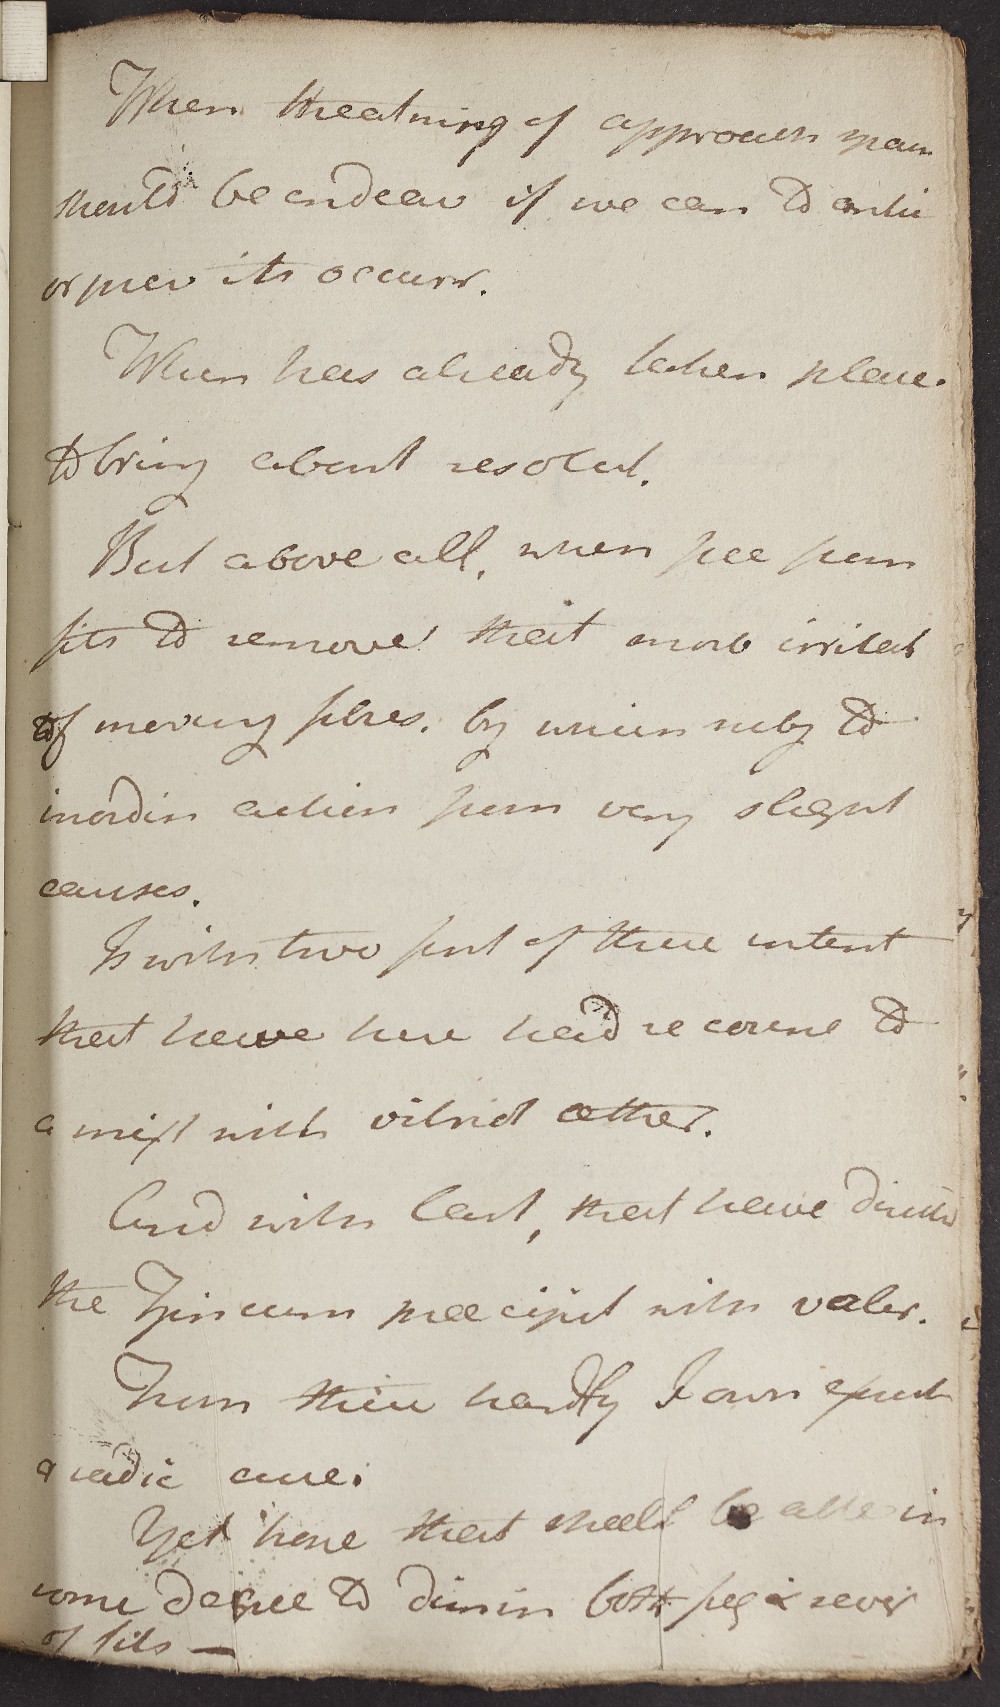 When threatning of approach spam
should be endeav if we can to antici
or prev its occurr.
When has already taken place.
to bring about resolut.
But above all, when free from
fits to remove that morb irritab
of moving fibres. by which subj to
inordin action from very slight
causes.
Is with two first of these intent
that have here had recourse to
a mixt with vitriol æther.
And with last, that have directed
the Zincum precipit with valer.
From these hardly I own expect
a radic cure.
Yet hope that shall be able in
some degree to dimin both freq & sever
of fits —